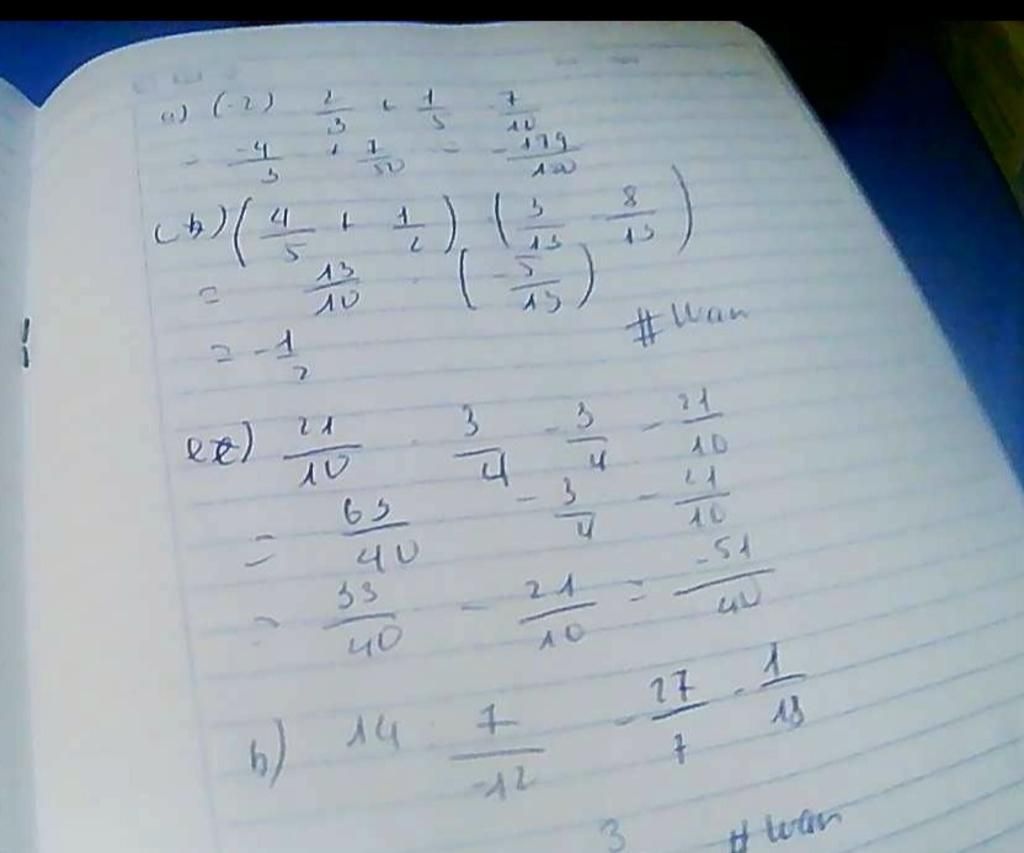 a) (-2) 2/3 + 1/5 7/10
= -4/3 + 7/50 = -179/150
b) (4/5 + 1/2) (3/13 - 8/13)
= 13/10 · (-5/13)
= -1/2
#Wan
e) 21/10 · 3/4 - 3/4 - 21/10
= 63/40 - 3/4 - 21/10
= 33/40 - 21/10 = -51/40
h) 14 · 7/-12 - 27/7 · 1/18
3 #Wan